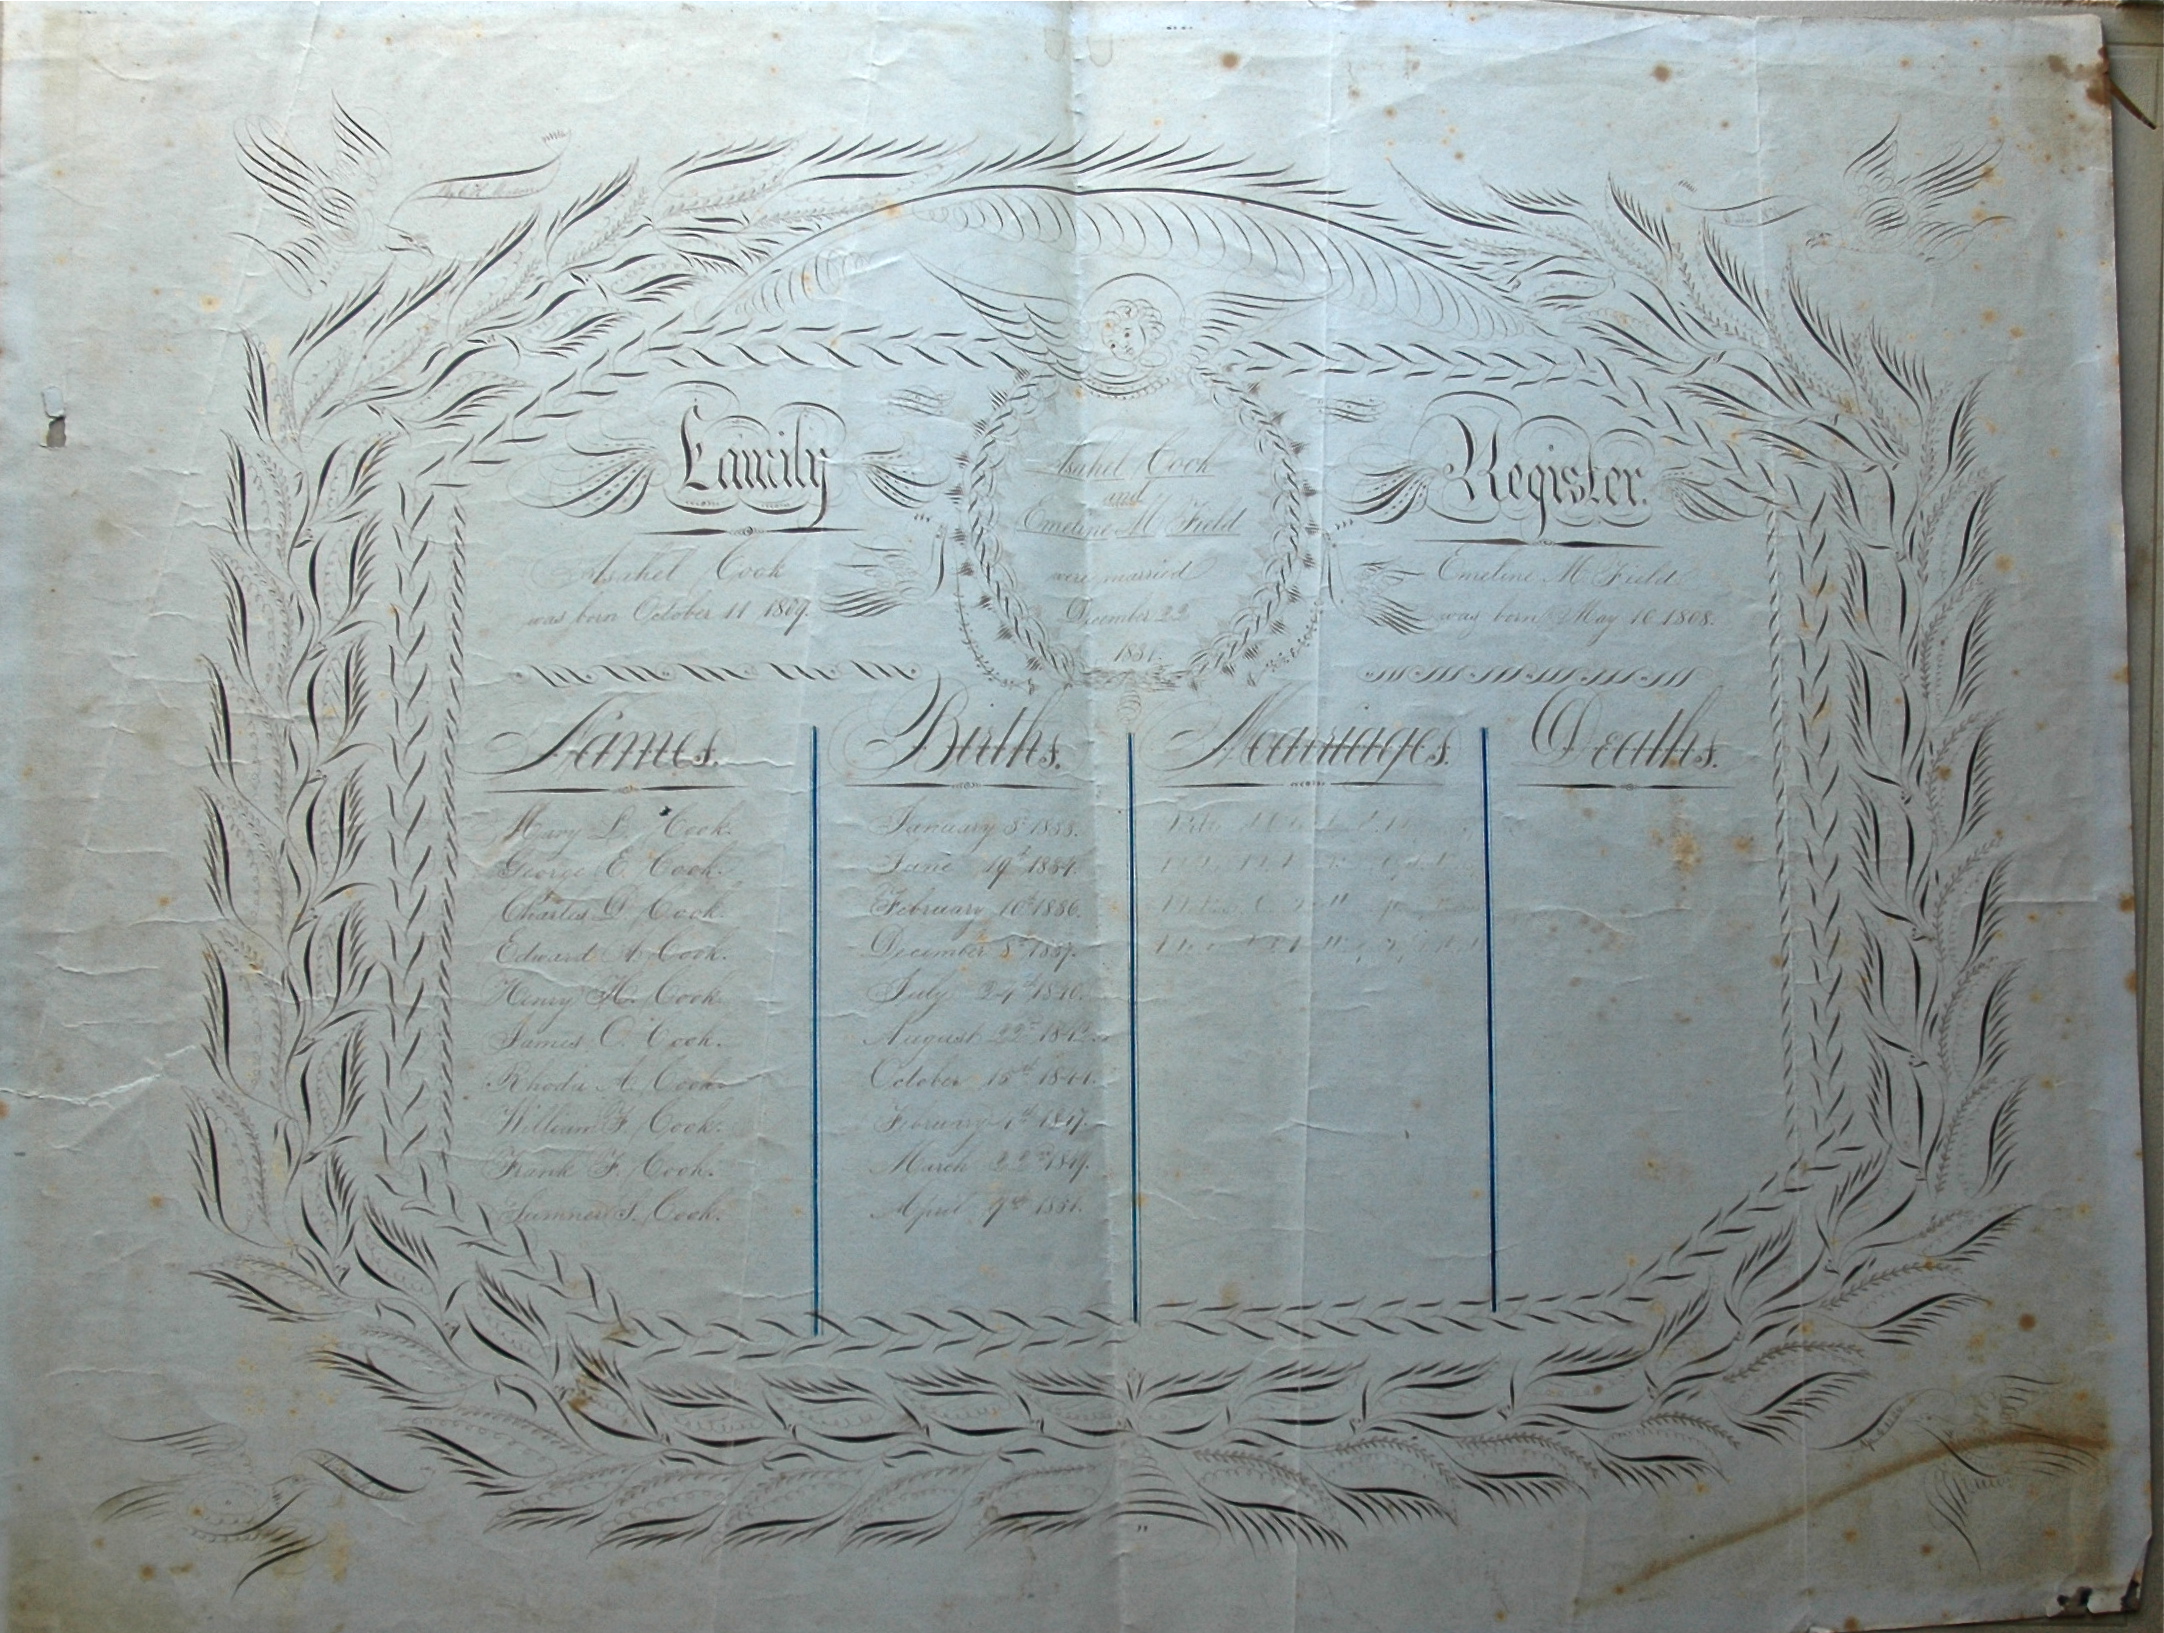 Family
Register.
Asahel Cook
and
Emeline M Field
were married
December 22
1831.
Asahel Cook
was born October 11 1809.
Emeline M Field
was born May 10 1808.
Names. Births. Marriages. Deaths.
Mary L. Cook. January 8th 1833.
George E. Cook. June 19th 1834.
Charles D. Cook. February 10th 1836.
Edward A. Cook. December 8th 1837.
Henry H. Cook. July 24th 1840.
James O. Cook. August 22nd 1842.
Rhoda A. Cook. October 15th 1844.
William F. Cook. February 1847.
Frank F. Cook. March 22nd 1849.
Sumner S. Cook. April 9th 1851.